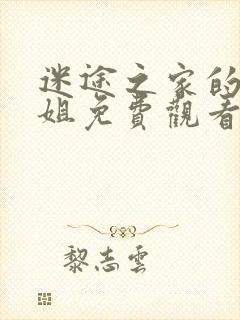 迷途之家的
姐免費觀看
黎志雲